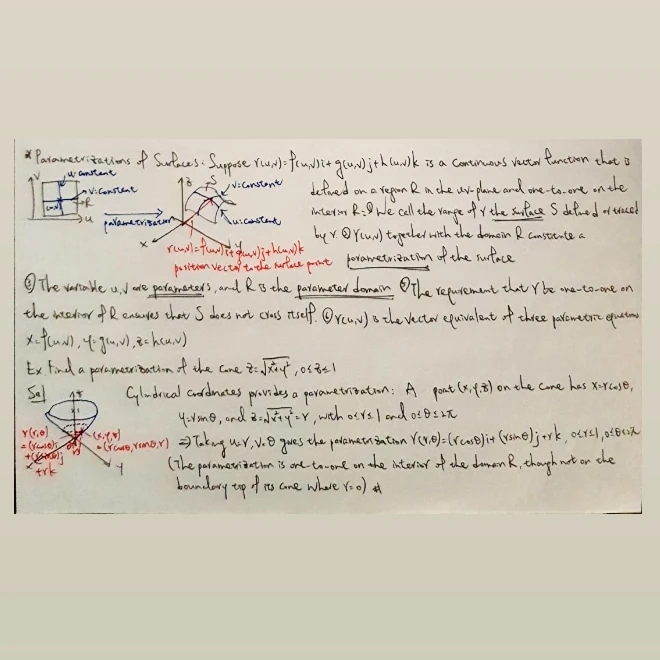 * Parametrizations of Surfaces: Suppose r(u,v)=f(u,v)i+g(u,v)j+h(u,v)k is a continuous vector function that is
defined on a region R in the uv-plane and one-to-one on the
interior R. ① We call the range of r the surface S defined or traced
by r. ② r(u,v) together with the domain R constitute a
parametrization of the surface
v
u=constant
v=constant
R
(u,v)
u
parametrization
z
S
v=constant
u=constant
x
y
r(u,v)=f(u,v)i+g(u,v)j+h(u,v)k
position vector to the surface point
③ The variable u,v are parameters, and R is the parameter domain ④ The requirement that r be one-to-one on
the interior of R ensures that S does not cross itself. ⑤ r(u,v) is the vector equivalent of three parametric equations
x=f(u,v), y=g(u,v), z=h(u,v)
Ex Find a parametrization of the cone z=√x²+y², 0≤z≤1
Sol
Cylindrical coordinates provides a parametrization: A point (x,y,z) on the cone has x=rcosθ,
y=rsinθ, and z=√x²+y²=r, with 0≤r≤1 and 0≤θ≤2π
⇒ Taking u=r, v=θ gives the parametrization r(r,θ)=(rcosθ)i+(rsinθ)j+rk, 0≤r≤1, 0≤θ≤2π
(The parametrization is one-to-one on the interior of the domain R, though not on the
boundary tip of its cone where r=0) #
z
1
r(r,θ)
=(rcosθ)i
+(rsinθ)j
+rk
(x,y,z)
=(rcosθ,rsinθ,r)
x
y